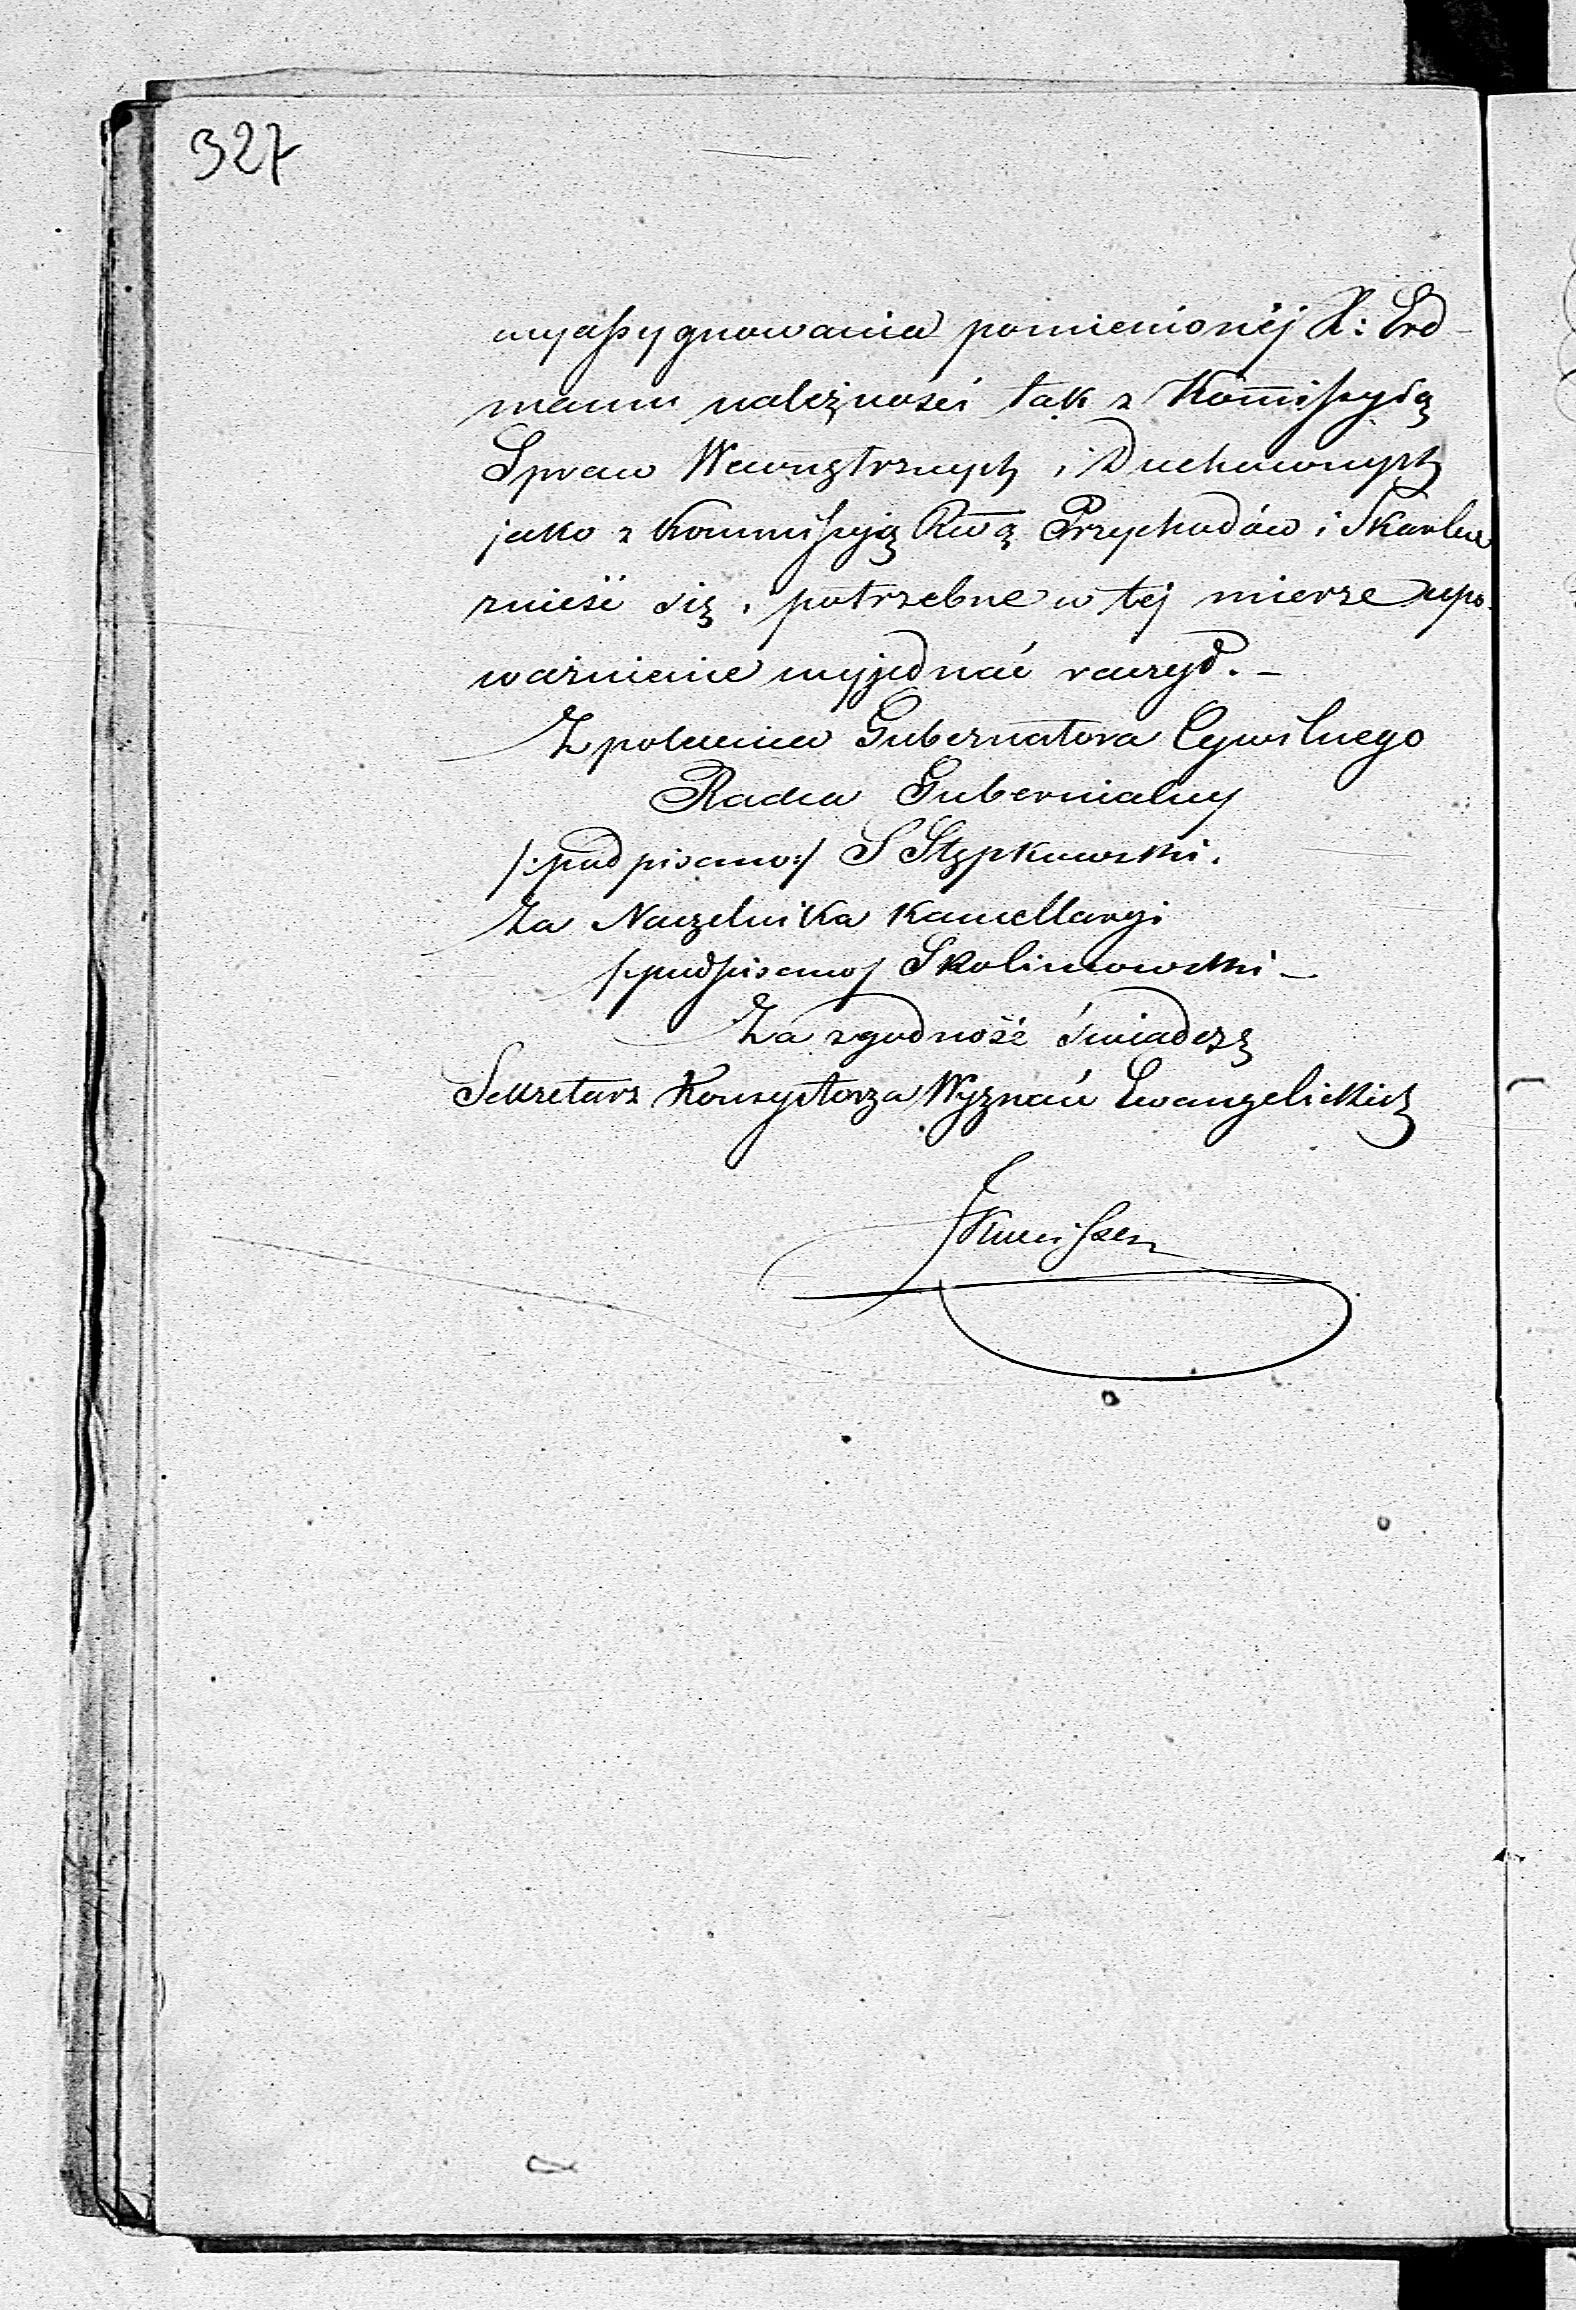 327
wyassygnowania pomienionéj X: Erd-
mann należności tak z Kommissyią
Spraw Wewnętrznych i Duchownych
jako z Kommissyją Rwą Przychodów i Skarbu
znieść się, potrzebne w téj mierze upo-
ważnienie wyjednać raczył. –
Z polecenia Gubernatora Cywilnego
Radca Gubernialny
/:podpisano:/ S Stępkowski.
Za Naczelnika Kancellaryi
/:podpisano/ Skolimowski –
Za zgodność świadczę
Sekretarz Konsystorza Wyznań Ewangelickich